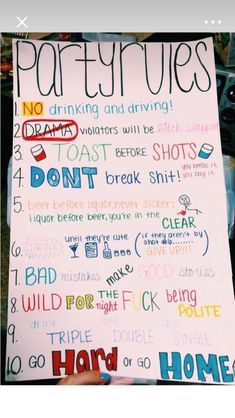 Party rules
1. NO drinking and driving!
2. DRAMA violators will be bitch slapped
3. TOAST BEFORE SHOTS
4. DON'T break shit! you break it, you buy it.
5. beer before liquor, never sicker;
liquor before beer, you're in the CLEAR
6. until they're cute (if they aren't by shot #8........ GIVE UP!!!)
7. BAD mistakes make GOOD stories
8. WILD FOR THE night FUCK being POLITE
9. drink see get
TRIPLE DOUBLE SINGLE
10. GO HARD or GO HOME